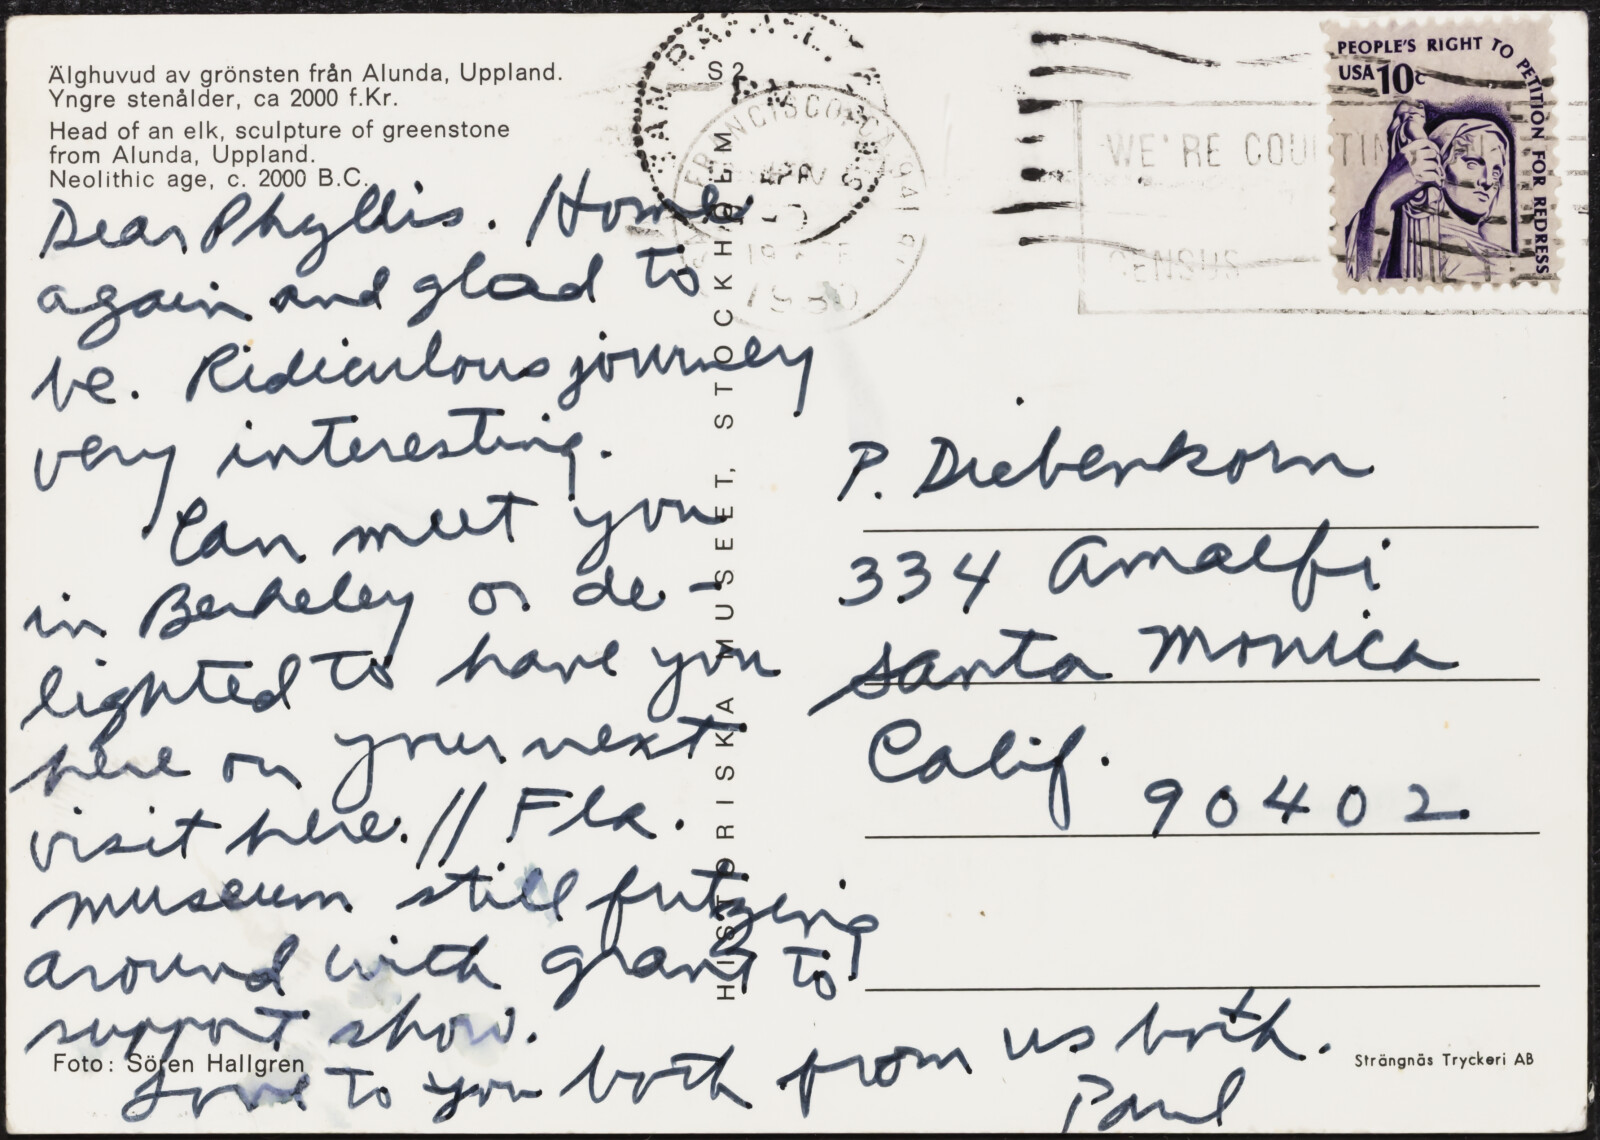 Älghuvud av grönsten från Alunda, Uppland.
Yngre stenålder, ca 2000 f.Kr.
Head of an elk, sculpture of greenstone
from Alunda, Uppland.
Neolithic age, c. 2000 B.C.
Dear Phyllis. Home
again and glad to
be. Ridiculous journey
very interesting.
Can meet you
in Berkeley or de-
lighted to have you
here on your next
visit here. // Fla.
museum still futzing
around with grant to
support show.
Love to you both from us both.
Paul
Foto: Sören Hallgren
HISTORISKA MUSEET, STOCKHOLM
S2
SAN FRANCISCO, CA 941
APR
1980
WE'RE COUNTIN
CENSUS
PEOPLE'S RIGHT TO PETITION FOR REDRESS
USA 10c
P. Diebenkorn
334 Amalfi
Santa Monica
Calif.
90402
Strängnäs Tryckeri AB